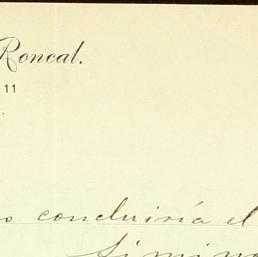 Roncal.
11
concluiría el